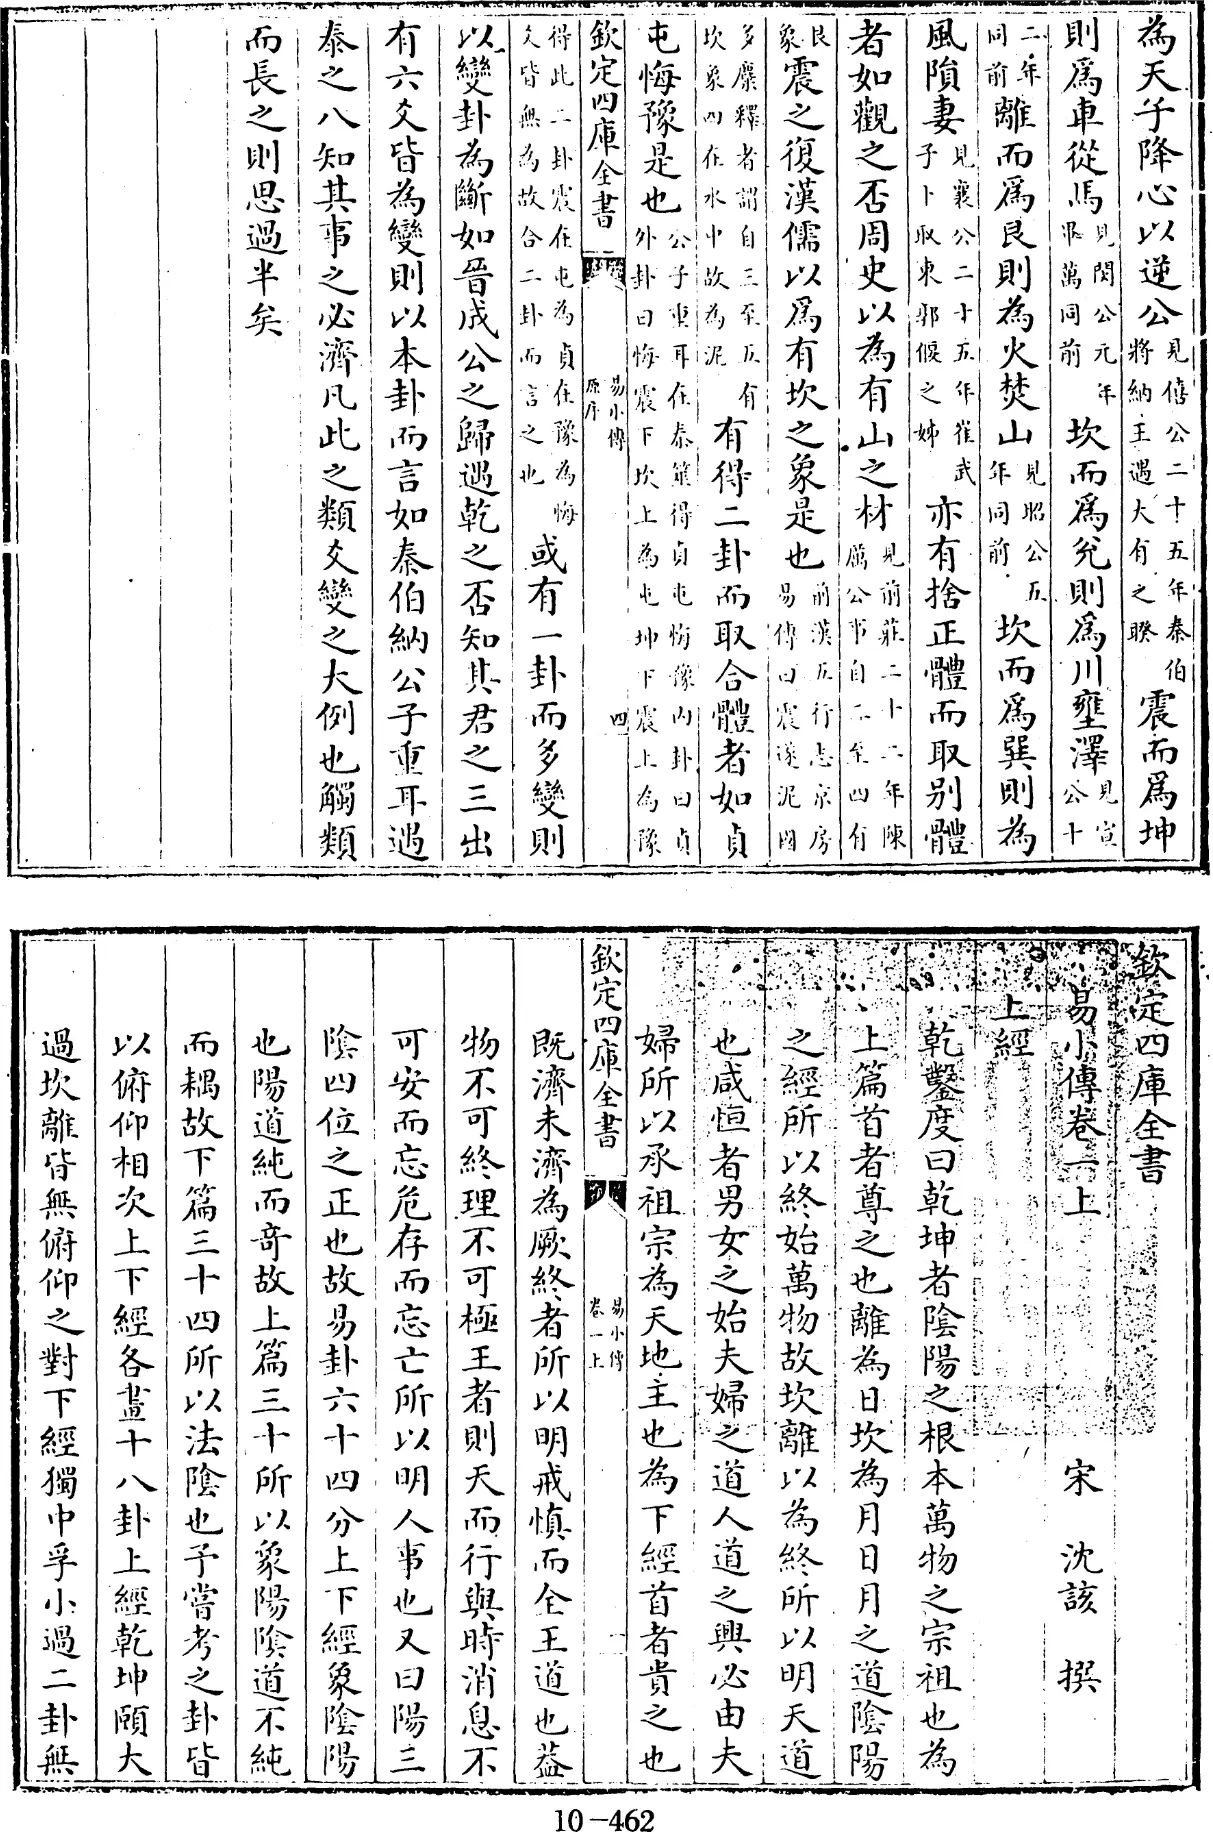 為天子降心以逆公見僖公二十五年秦伯將納王遇大有之睽震而為坤
則為車從馬見閔公元年畢萬同前坎而為兊則為川壅澤見宣公十
二年同前離而為艮則為火焚山見昭公五年同前坎而為巽則為
風隕妻見襄公二十五年崔武子卜取東郭偃之姊亦有捨正體而取别體
者如觀之否周史以為有山之材見前莊二十二年陳厲公事自二至四有
艮象震之復漢儒以為有坎之象是也前漢五行志京房易傳曰震遂泥國
多麋釋者謂自三至五有坎象四在水中故為泥有得二卦而取合體者如貞
屯悔豫是也公子重耳在秦筮得貞屯悔豫内卦曰貞外卦曰悔震下坎上為屯坤下震上為豫
欽定四庫全書 易小傳原序 四
得此二卦震在屯為貞在豫為悔爻皆無為故合二卦而言之也或有一卦而多變則
以變卦為斷如晉成公之歸遇乾之否知其君之三出
有六爻皆為變則以本卦而言如秦伯納公子重耳遇
泰之八知其事之必濟凡此之類爻變之大例也觸類
而長之則思過半矣
欽定四庫全書
易小傳卷一上
宋 沈該 撰
上經
乾鑿度曰乾坤者陰陽之根本萬物之宗祖也為
上篇首者尊之也離為日坎為月日月之道陰陽
之經所以終始萬物故坎離以為終所以明天道
也咸恒者男女之始夫婦之道人道之興必由夫
婦所以承祖宗為天地主也為下經首者貴之也
欽定四庫全書 易小傳卷一上 一
既濟未濟為厥終者所以明戒慎而全王道也葢
物不可終理不可極王者則天而行與時消息不
可安而忘危存而忘亡所以明人事也又曰陽三
陰四位之正也故易卦六十四分上下經象陰陽
也陽道純而竒故上篇三十所以象陽陰道不純
而耦故下篇三十四所以法陰也予嘗考之卦皆
以俯仰相次上下經各畫十八卦上經乾坤頤大
過坎離皆無俯仰之對下經獨中孚小過二卦無
10-462